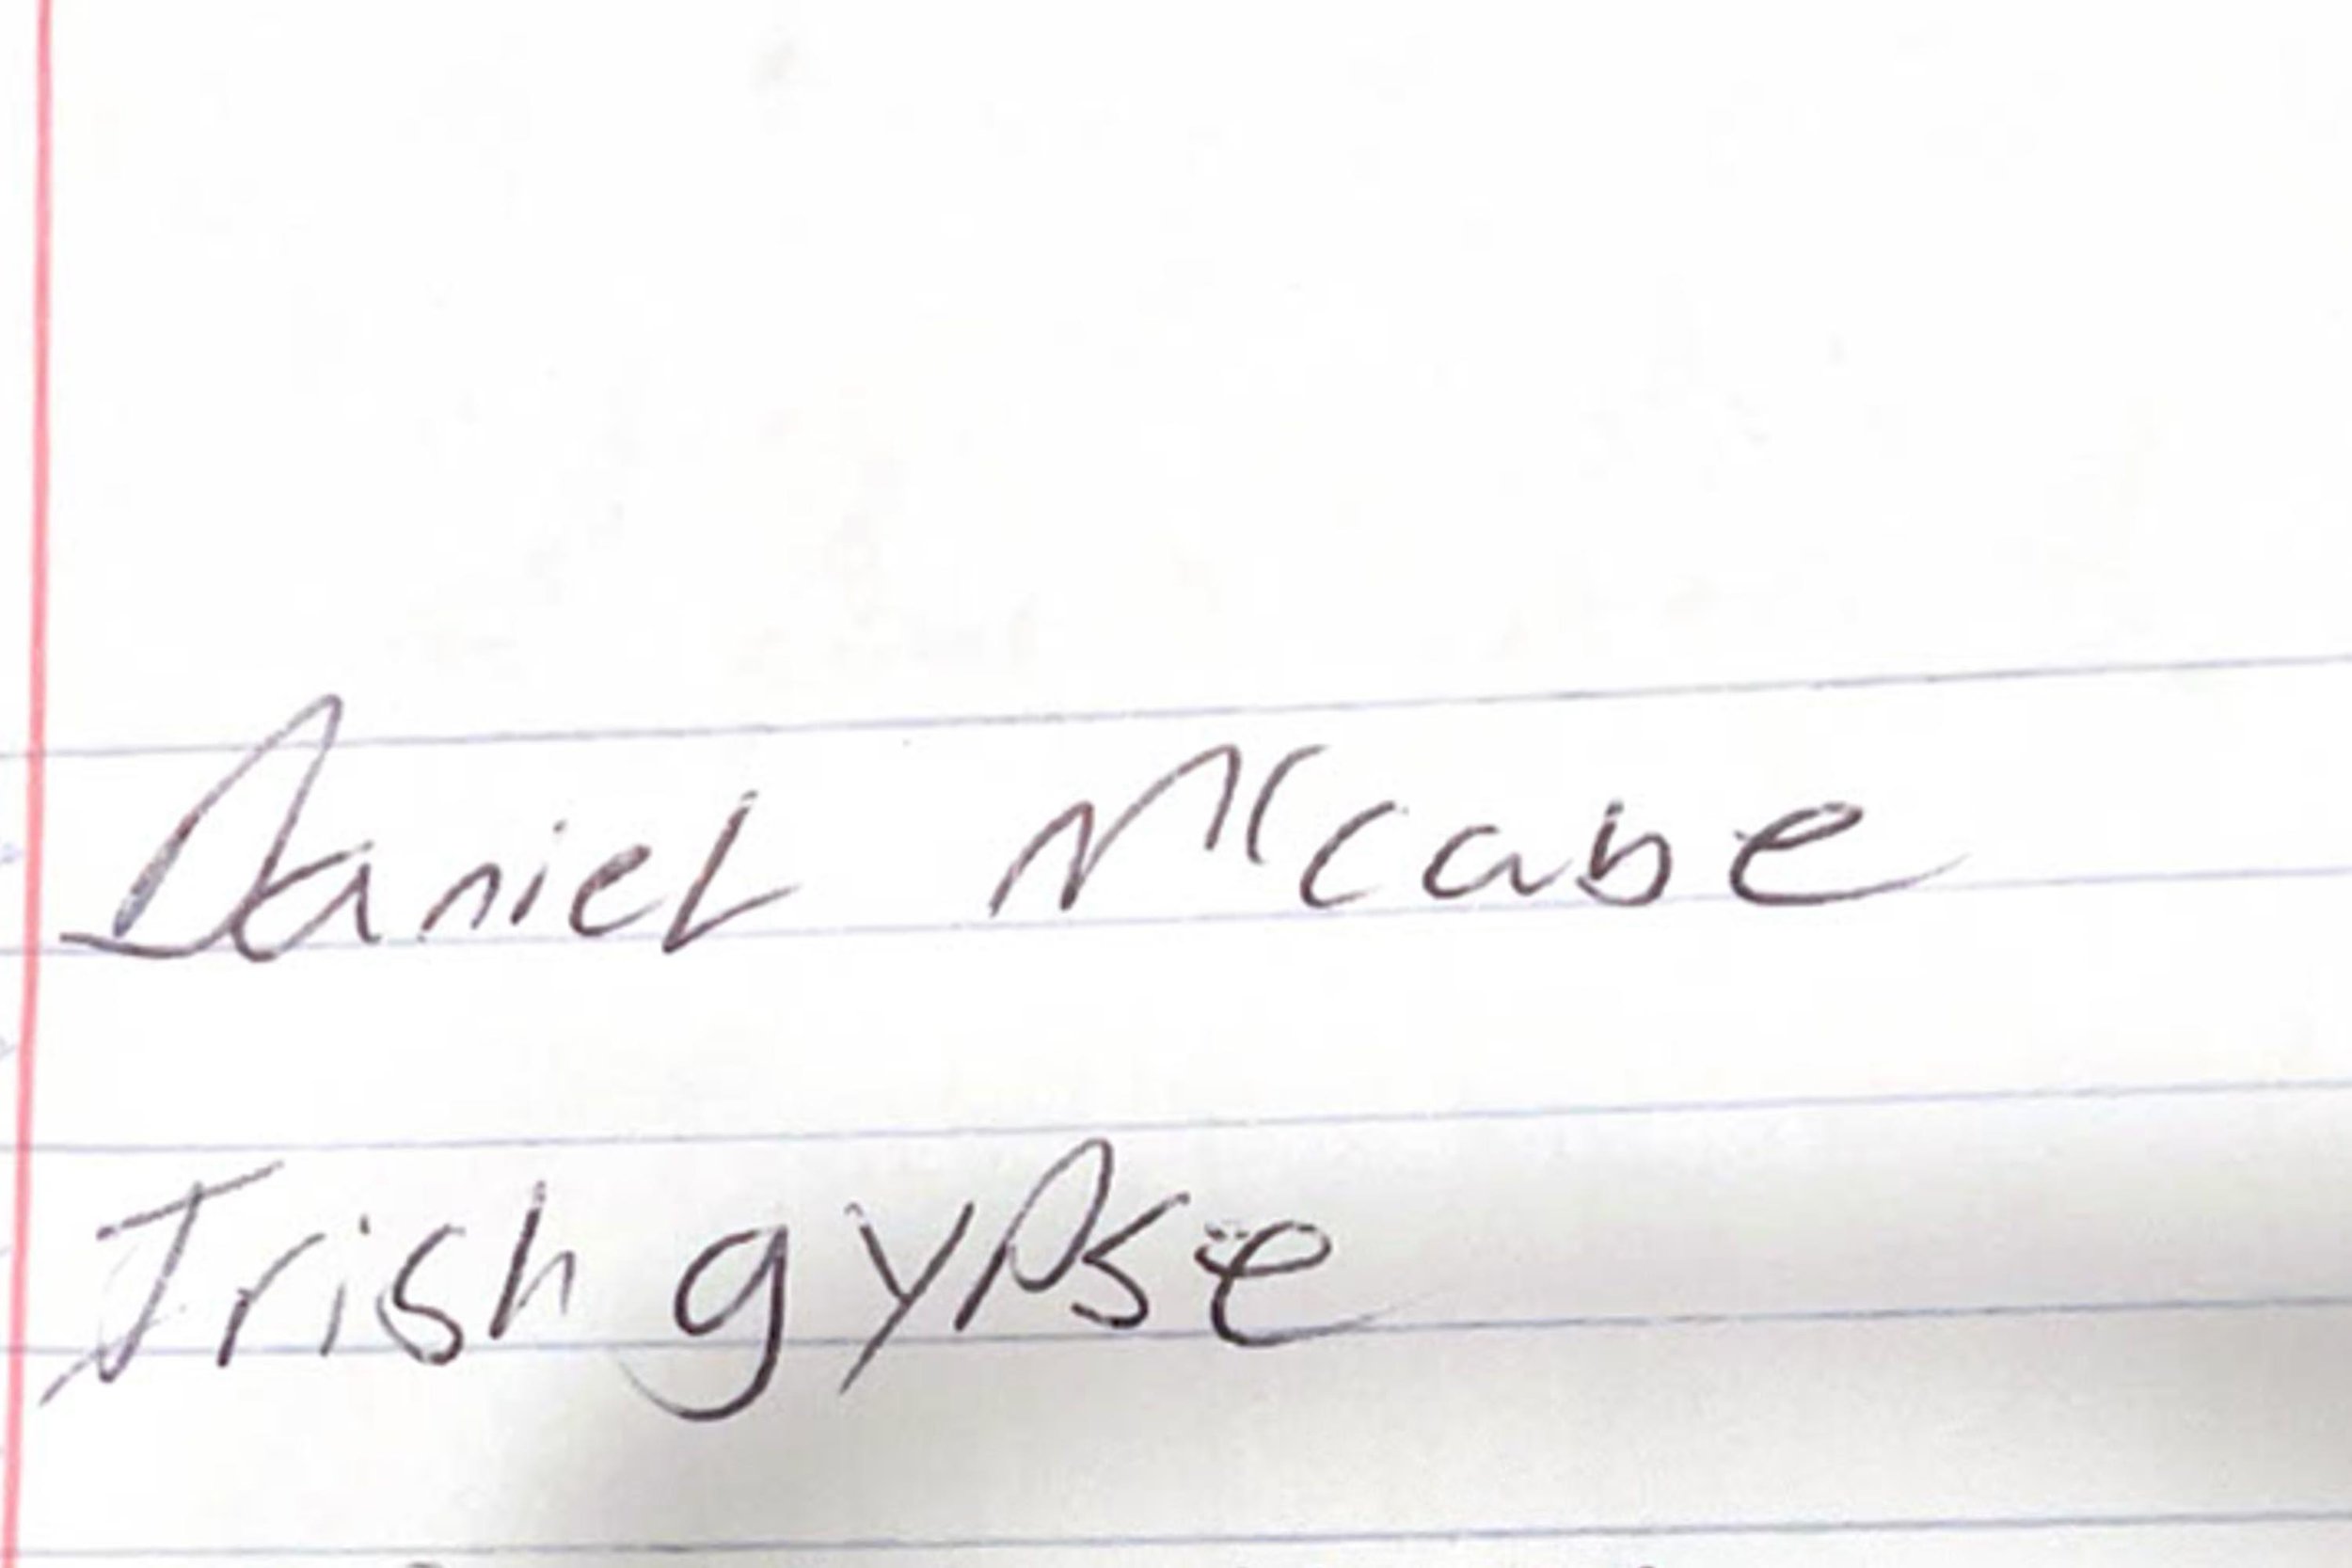 Daniel Mccabe
Irish gypse